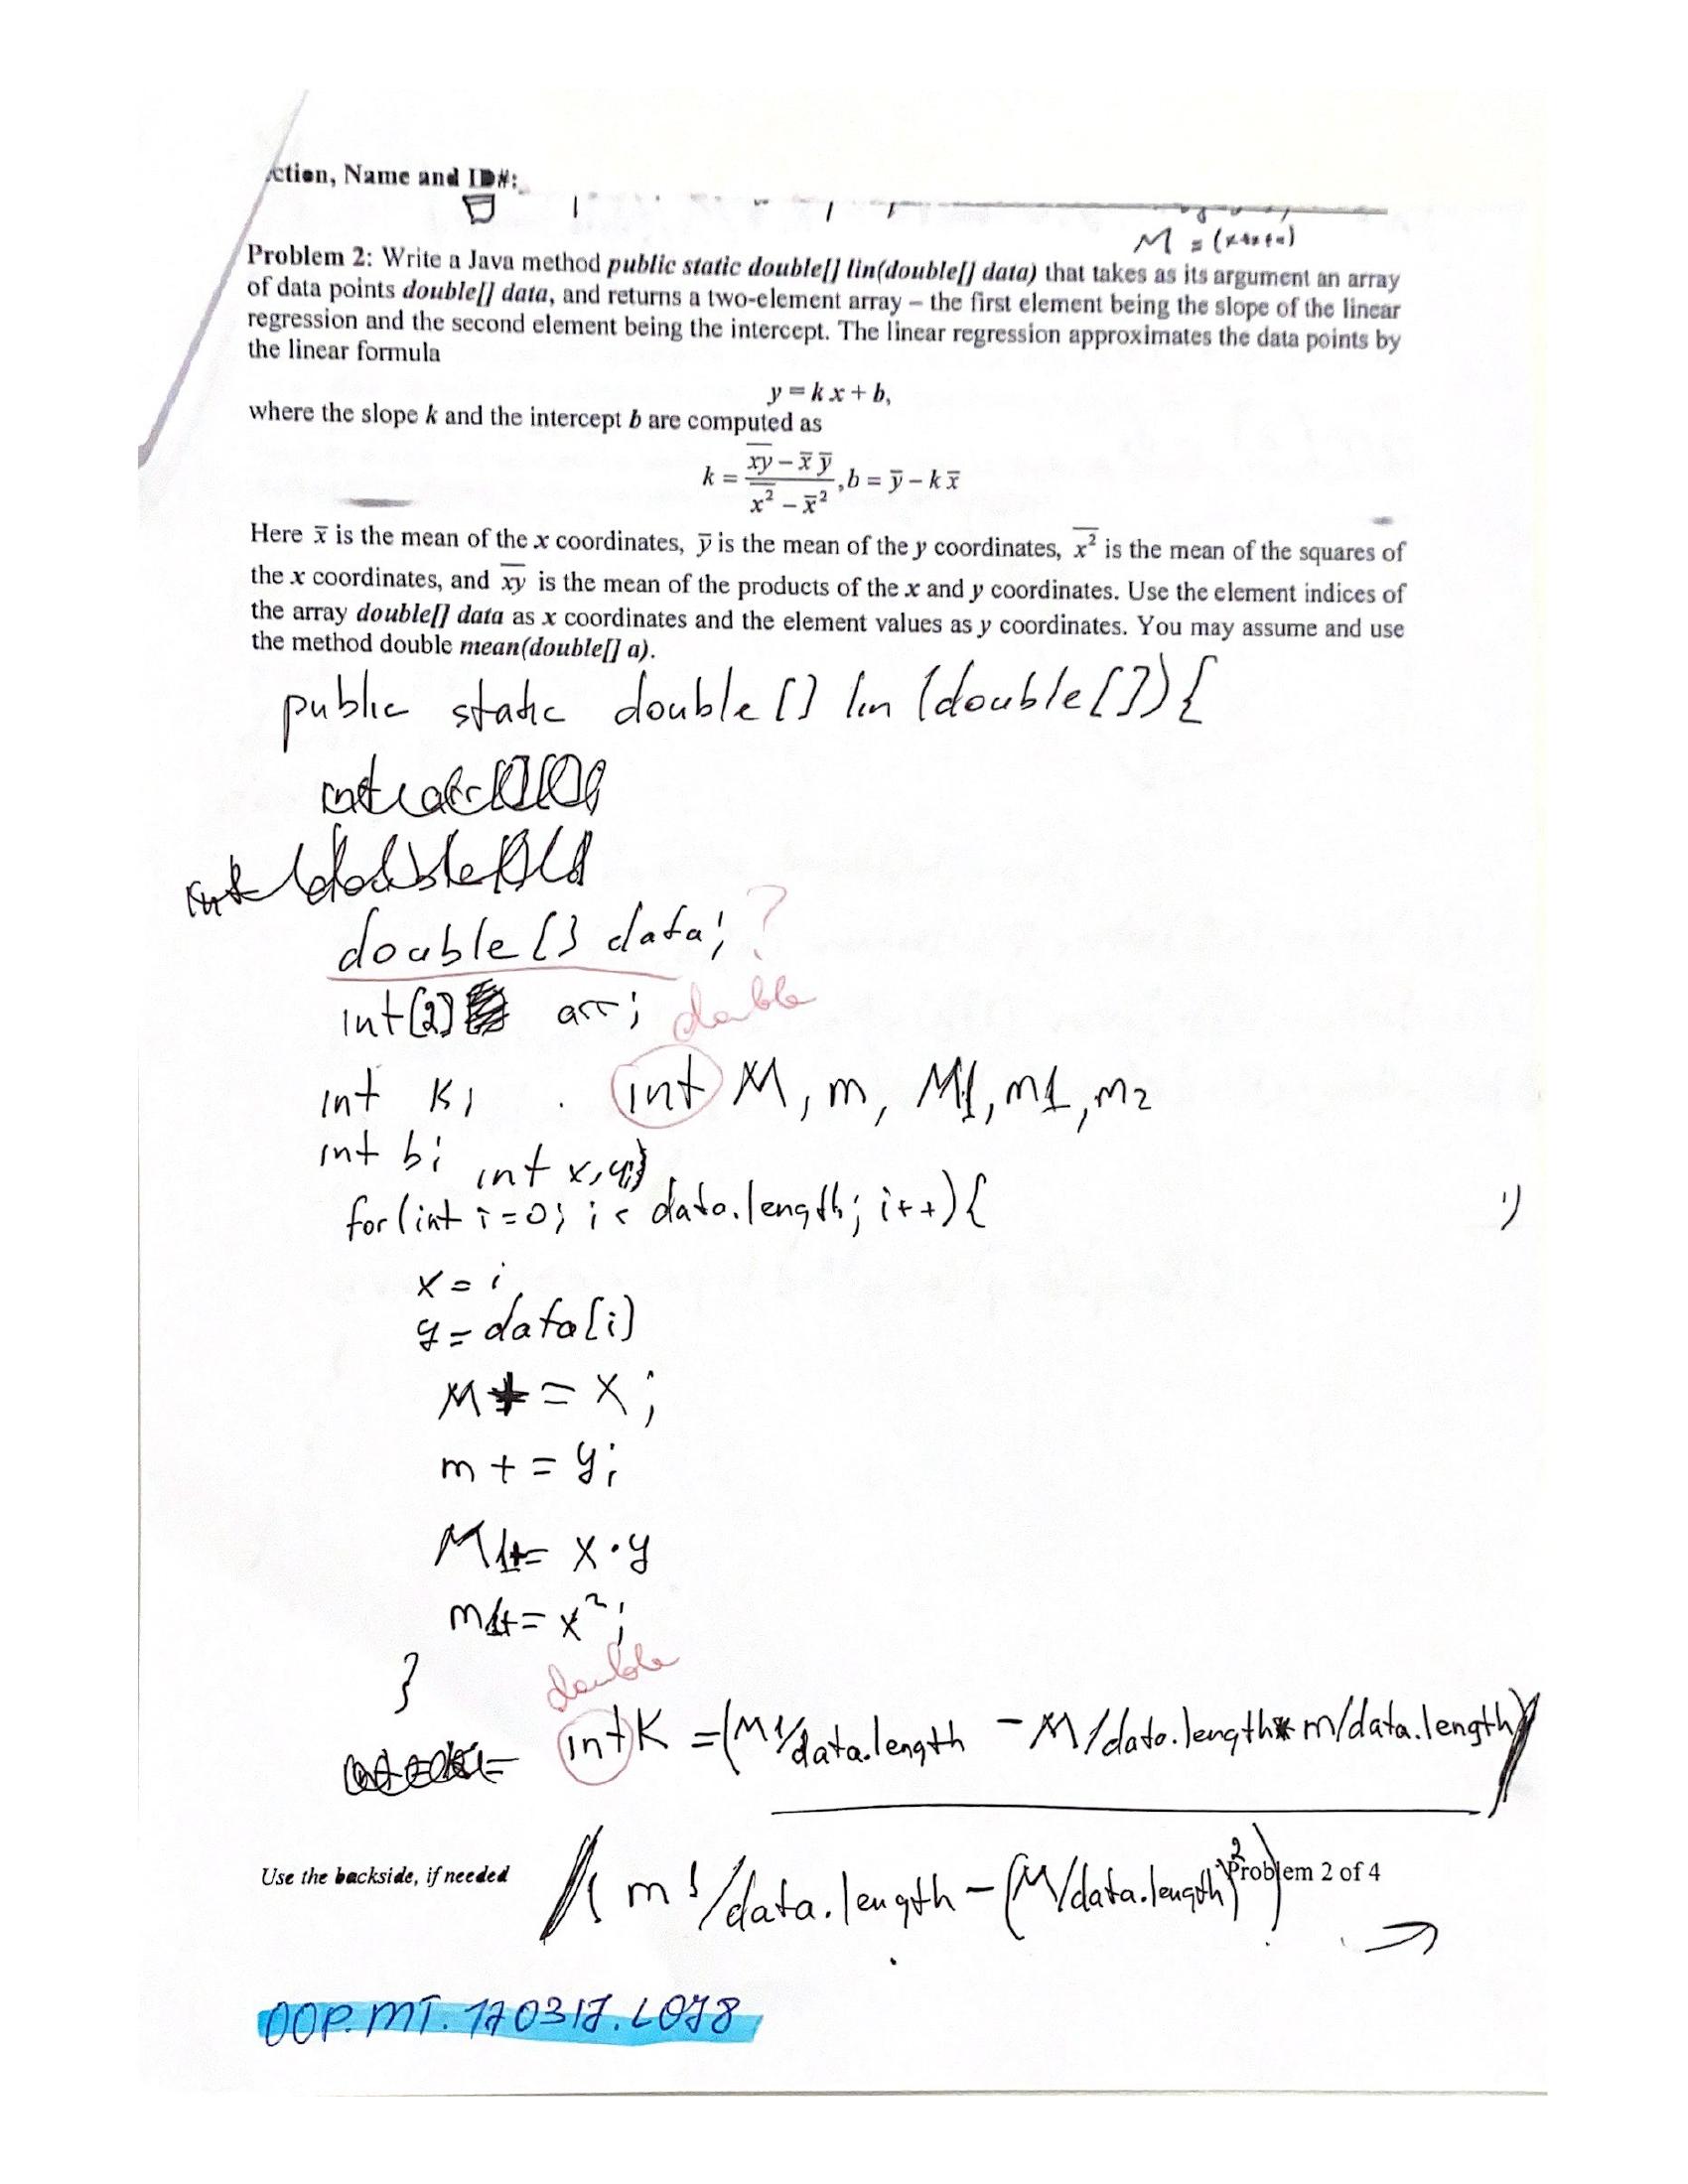 ction, Name and ID#:
M = (x+x+x)
Problem 2: Write a Java method public static double[] lin(double[] data) that takes as its argument an array
of data points double[] data, and returns a two-element array – the first element being the slope of the linear
regression and the second element being the intercept. The linear regression approximates the data points by
the linear formula
y = k x + b,
where the slope k and the intercept b are computed as
k = (x̅y̅ – x̅ y̅) / (x̅²̅ – x̅²) , b = y̅ – k x̅
Here x̅ is the mean of the x coordinates, y̅ is the mean of the y coordinates, x̅²̅ is the mean of the squares of
the x coordinates, and x̅y̅ is the mean of the products of the x and y coordinates. Use the element indices of
the array double[] data as x coordinates and the element values as y coordinates. You may assume and use
the method double mean(double[] a).
public static double[] lin (double[]){
double[] data; ?
int[2] arr; double
int k; int M, m, M1, m1, m2
int b; int x, y;
for(int i=0; i < data.length; i++){
x = i
y = data[i]
M += x;
m += y;
M1+= x·y
m1+= x²;
}
double
int K = (M1/data.length - M/data.length * m/data.length)
/( m1/data.length - (M/data.length)²)
Use the backside, if needed
Problem 2 of 4
OOP.MT.170317.L078